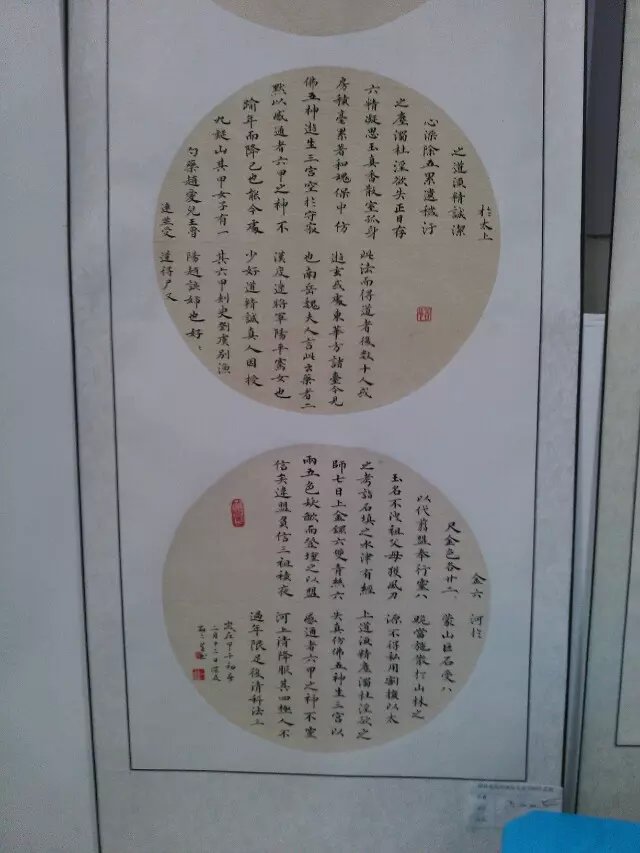 於太上
之道須精誠潔
心澡除五累遺穢汙
之塵濁杜淫欲失正目存
六精凝思玉真香散室孤身
房積毫累著和魂保中仿
佛五神遊生三宮空於守寂
默以感通者六甲之神不
踰年而降己也能令處
九疑山其甲女子有一
勺藥趙愛兒王魯
連並受
此法而得道者復數十人或
遊玄或處東華方諸臺今見
也南岳魏夫人言此云藥者二
漢度遼將軍陽平竇女也
少好道精誠真人因授
其六甲刺史劉虞別漁
陽趙該姊也好
道得尸又
金六
尺金色各廿二
以代翦盟奉行靈八
玉名不洩祖父母獲風刀
之考詣石填之水津有經
師七日上金鐶六雙青絲六
兩五色歃而營埋之以盟
信矣違盟負信三祖被夜
河於
蒙山巨石受八
跪當施散於山林之
源不得私用割損以太
上道須精塵濁杜淫欲之
失真仿佛五神生三宮以
感通者六甲之神不靈
河上清降眠其四極人不
過年限足後清科法三
歲在甲午初春
二月十三日